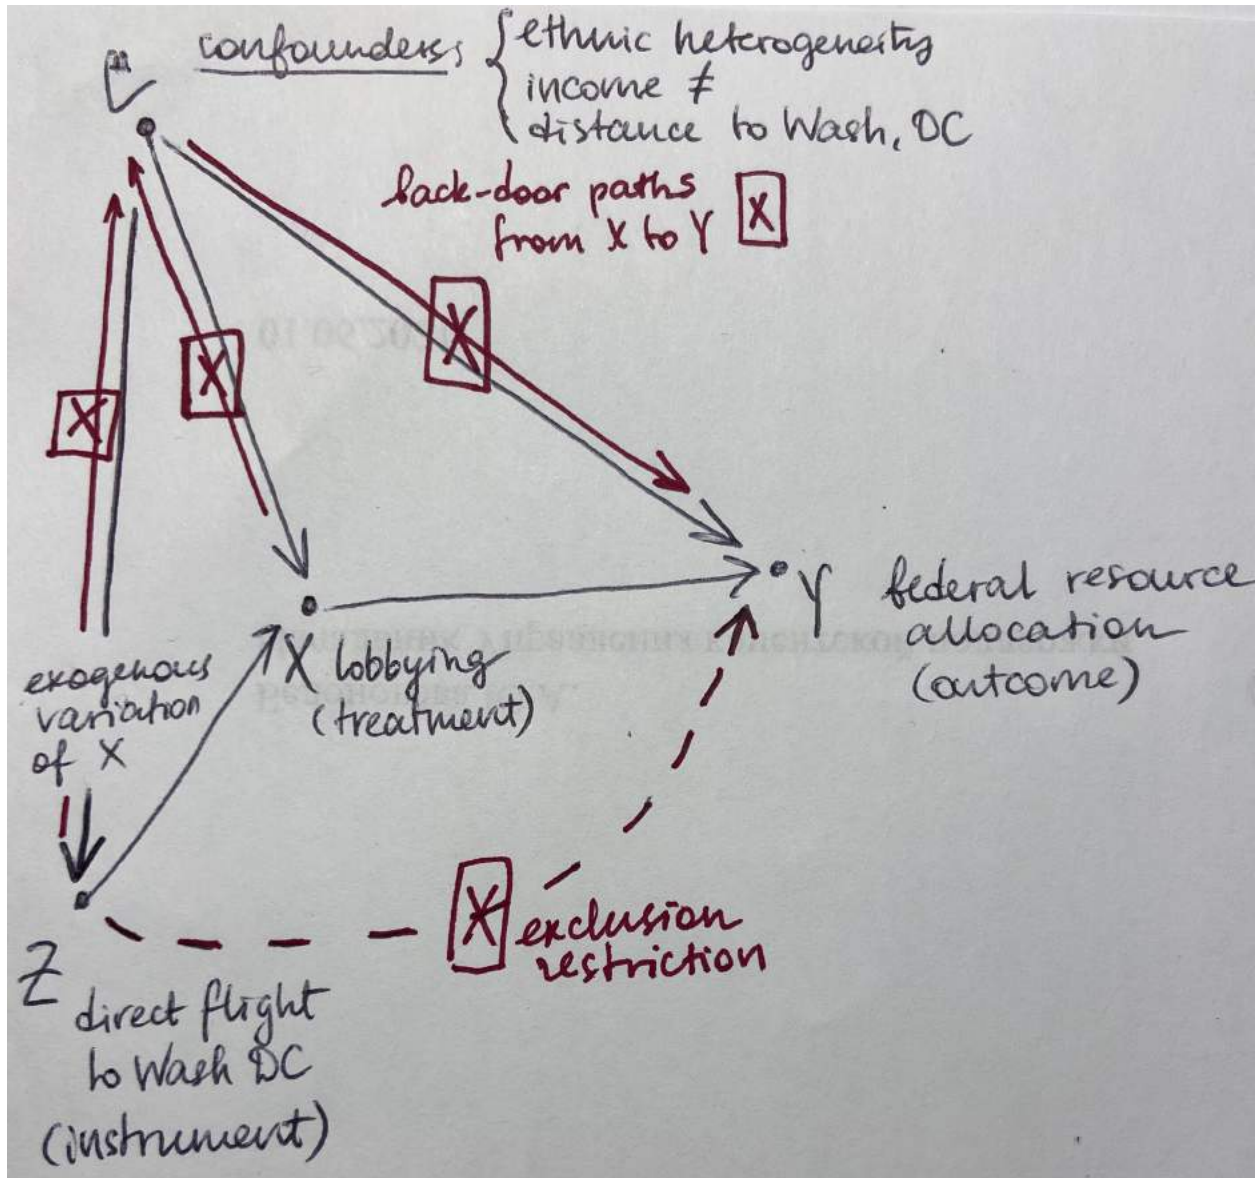 C confounders, { ethnic heterogeneity
income ≠
distance to Wash, DC
back-door paths
from X to Y X
X
X
X
exogenous
variation
of X
X lobbying
(treatment)
Y federal resource
allocation
(outcome)
X exclusion
restriction
Z direct flight
to Wash DC
(instrument)